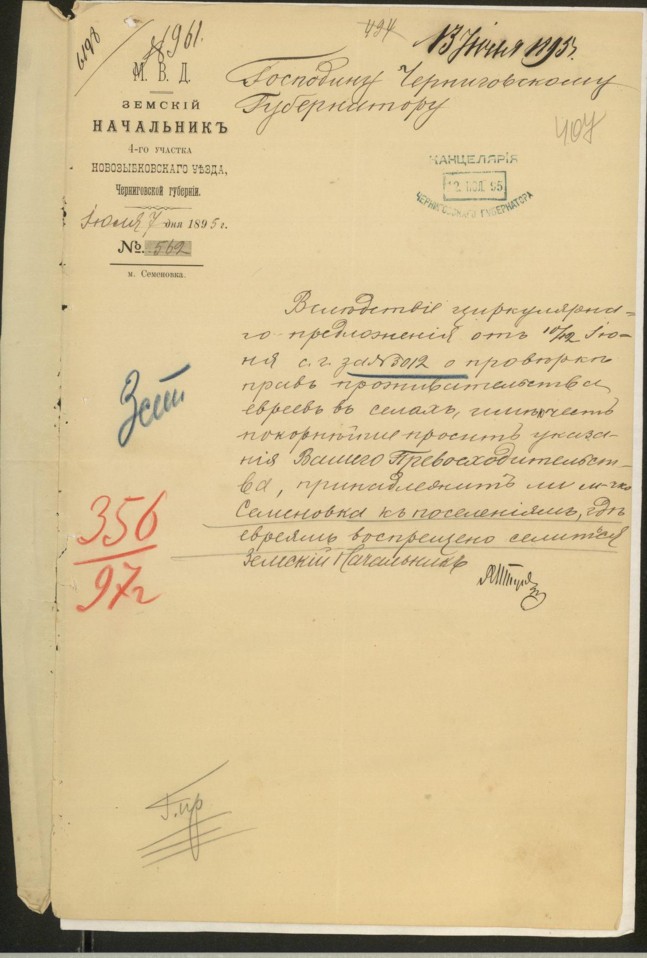 6198
1961.
494
13 Июля 1895 г.
М. В. Д.
ЗЕМСКІЙ
НАЧАЛЬНИКЪ
4-го участка
НОВОЗЫБКОВСКАГО УѢЗДА,
Черниговской губерніи.
Іюля 7 дня 1895 г.
№. 562
м. Семеновка.
Господину Черниговскому
Губернатору
407
КАНЦЕЛЯРІЯ
12. ІЮЛ. 95
ЧЕРНИГОВСКАГО ГУБЕРНАТОРА
Вслѣдствіе циркулярна-
го предложенія отъ 10/12 Ію-
ня с. г. за № 3012 о провѣркѣ
правъ прожительства
евреевъ въ селахъ, имѣю честь
покорнѣйше просить указа-
нія Вашего Превосходительст-
ва, принадлежитъ ли м-чко
Семеновка къ поселеніямъ, гдѣ
евреямъ воспрещено селиться
Земскій Начальникъ
3 ст
356
97 г